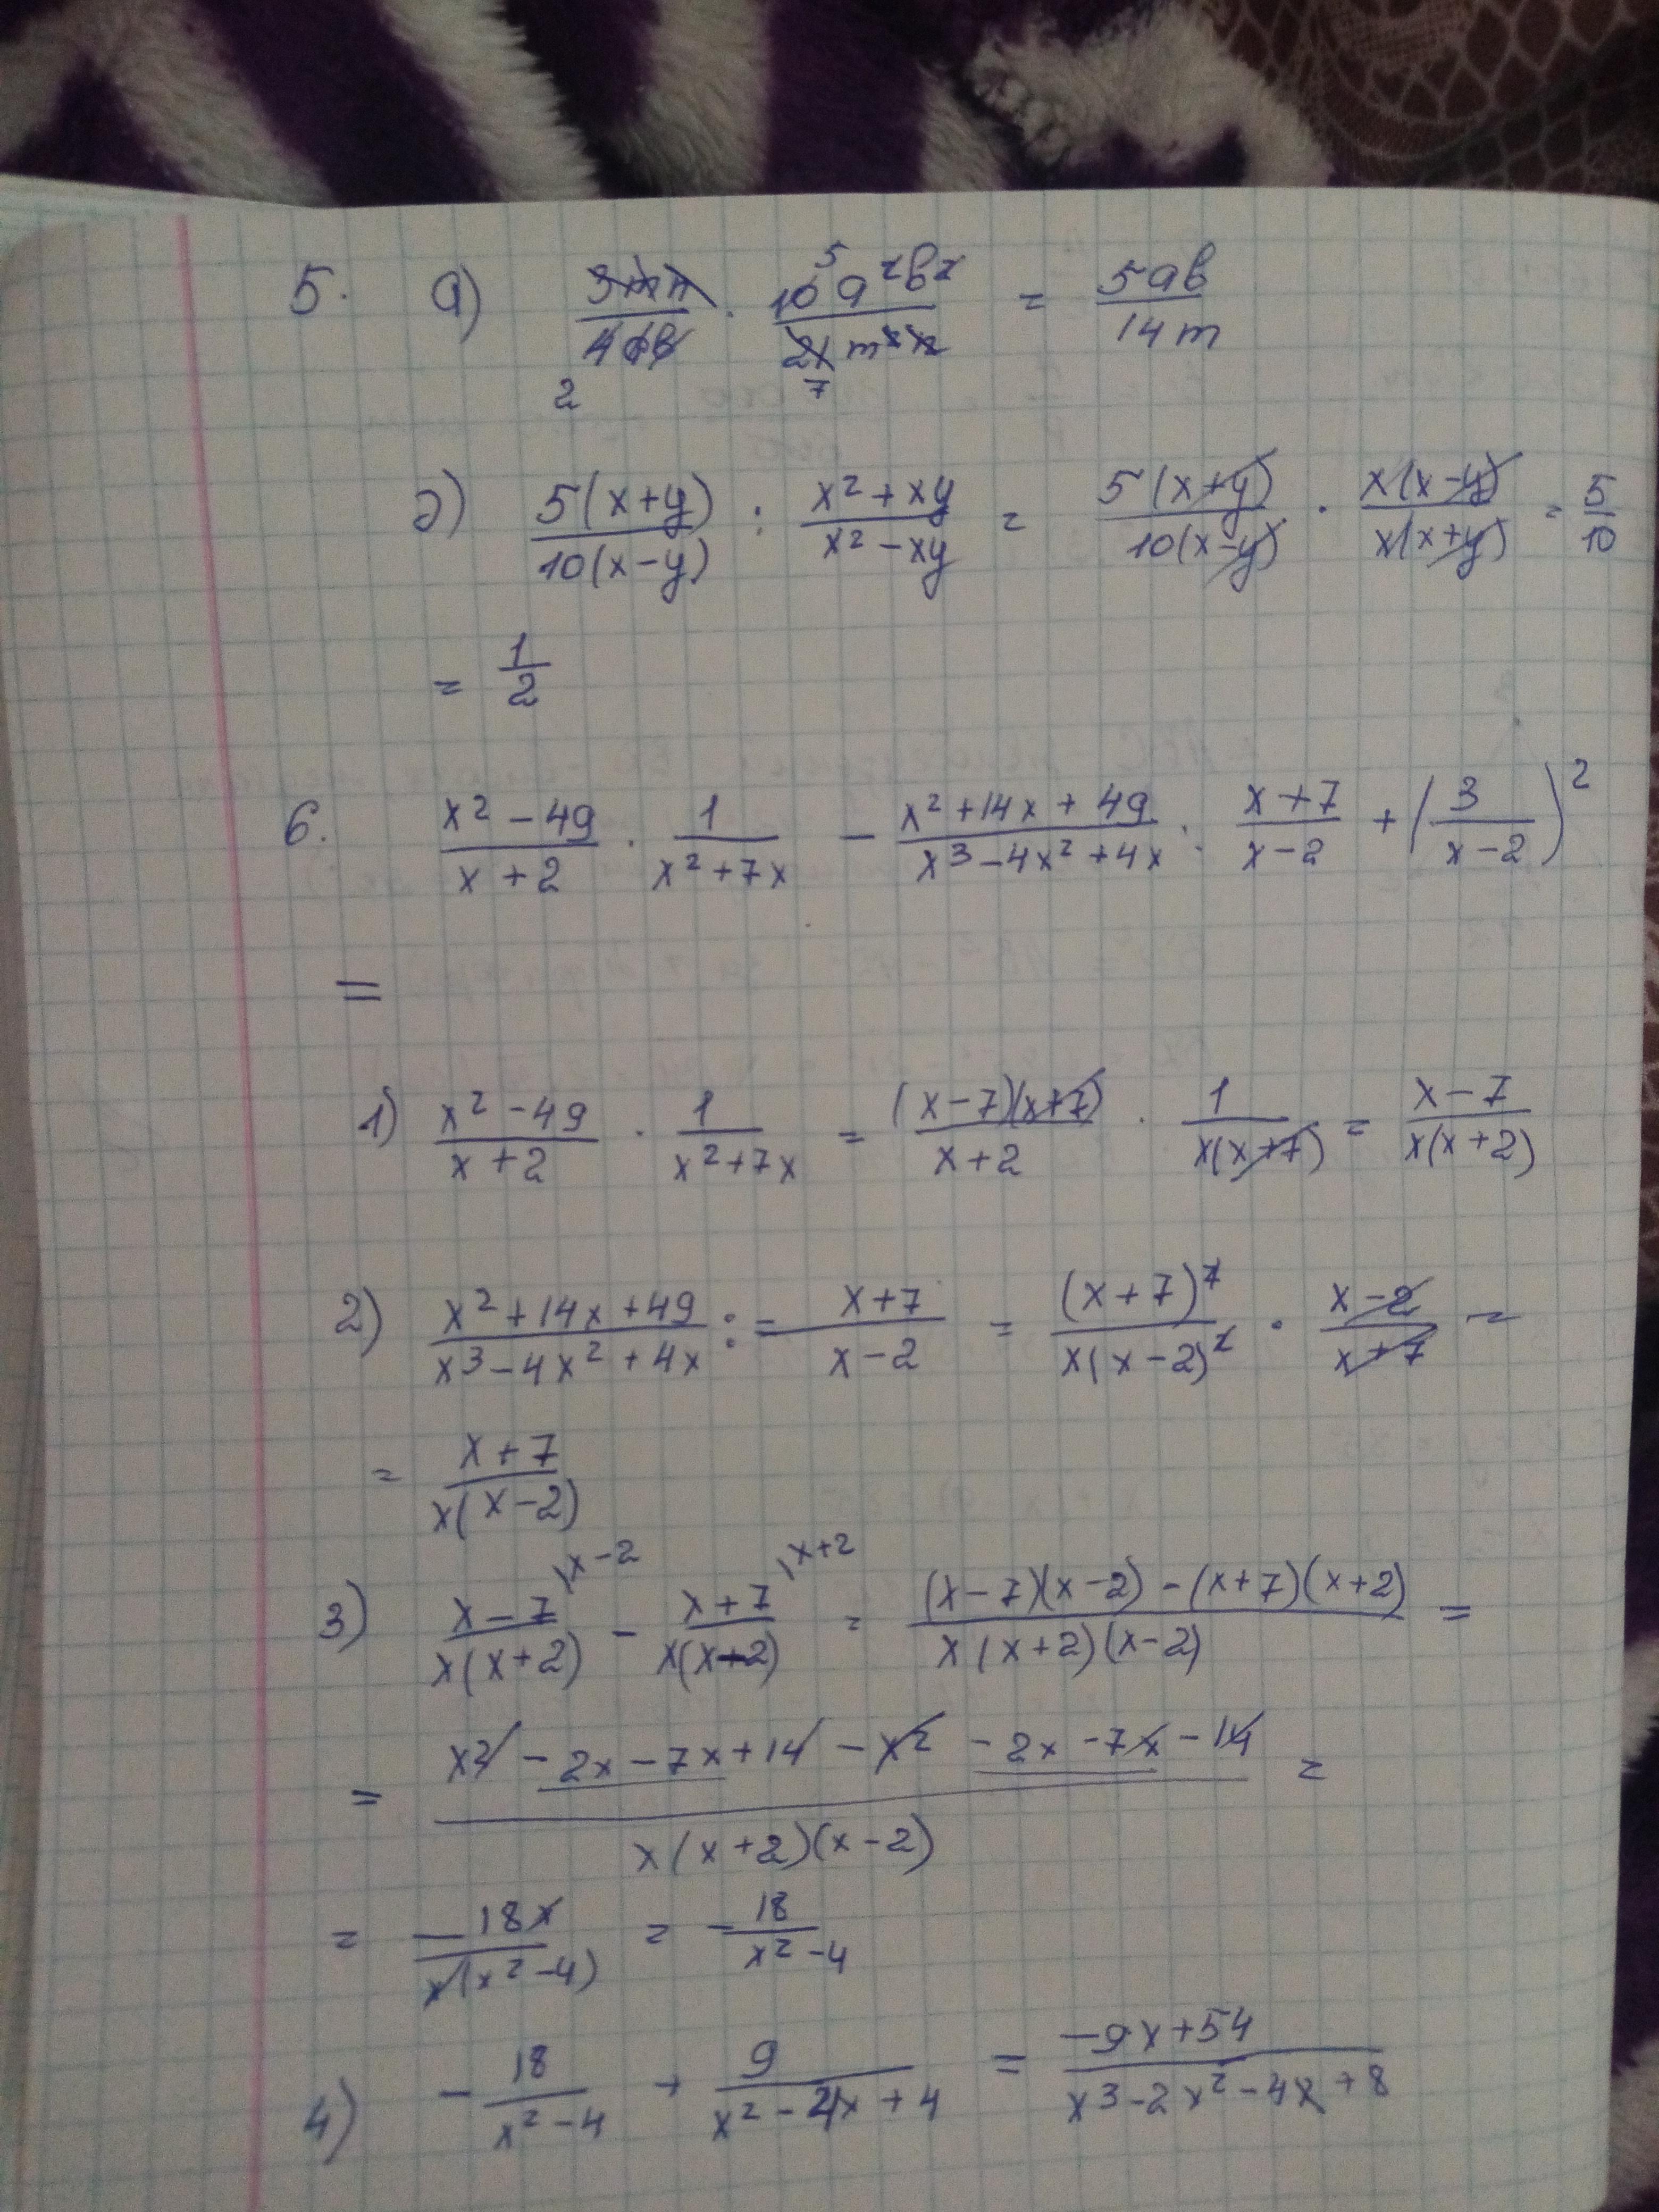 5. а) 3mn/4ab · 10a²b²/21m²n = 5ab/14m
5
2 7
д) 5(x+y)/10(x-y) : x²+xy/x²-xy = 5(x+y)/10(x-y) · x(x-y)/x(x+y) = 5/10
= 1/2
6. x²-49/x+2 · 1/x²+7x - x²+14x+49/x³-4x²+4x : x+7/x-2 + (3/x-2)²
=
1) x²-49/x+2 · 1/x²+7x = (x-7)(x+7)/x+2 · 1/x(x+7) = x-7/x(x+2)
2) x²+14x+49/x³-4x²+4x := x+7/x-2 = (x+7)²/x(x-2)² · x-2/x+7 =
= x+7/x(x-2)
3) x-7\x-2/x(x+2) - x+7\x+2/x(x-2) = (x-7)(x-2)-(x+7)(x+2)/x(x+2)(x-2) =
= x²-2x-7x+14-x²-2x-7x-14/x(x+2)(x-2) =
= -18x/x(x²-4) = -18/x²-4
4) -18/x²-4 + 9/x²-4x+4 = -9x+54/x³-2x²-4x+8